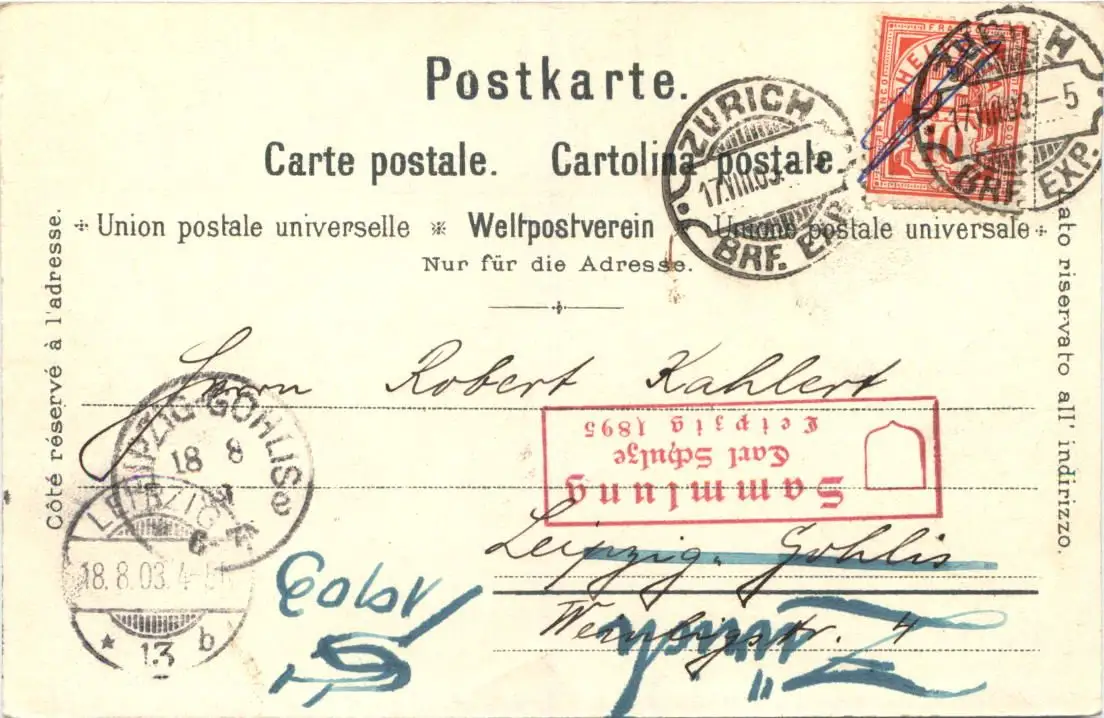 Postkarte.
Carte postale. Cartolina postale.
Union postale universelle Weltpostverein Unione postale universale
Nur für die Adresse.
Côté réservé à l'adresse.
Lato riservato all' indirizzo.
FRANCO
HELVETIA
10
ZÜRICH
17.VIII.03.-5
BRF. EXP.
ZÜRICH
17.VIII.03.
BRF. EXP.
Herrn Robert Kahlert
LEIPZIG-GOHLIS
18 8
6-7
LEIPZIG
18.8.03.4-5
* 13 b
Sammlung
Carl Schulze
Leipzig 1895
Leipzig-Gohlis
Weinligstr. 4
Zürich